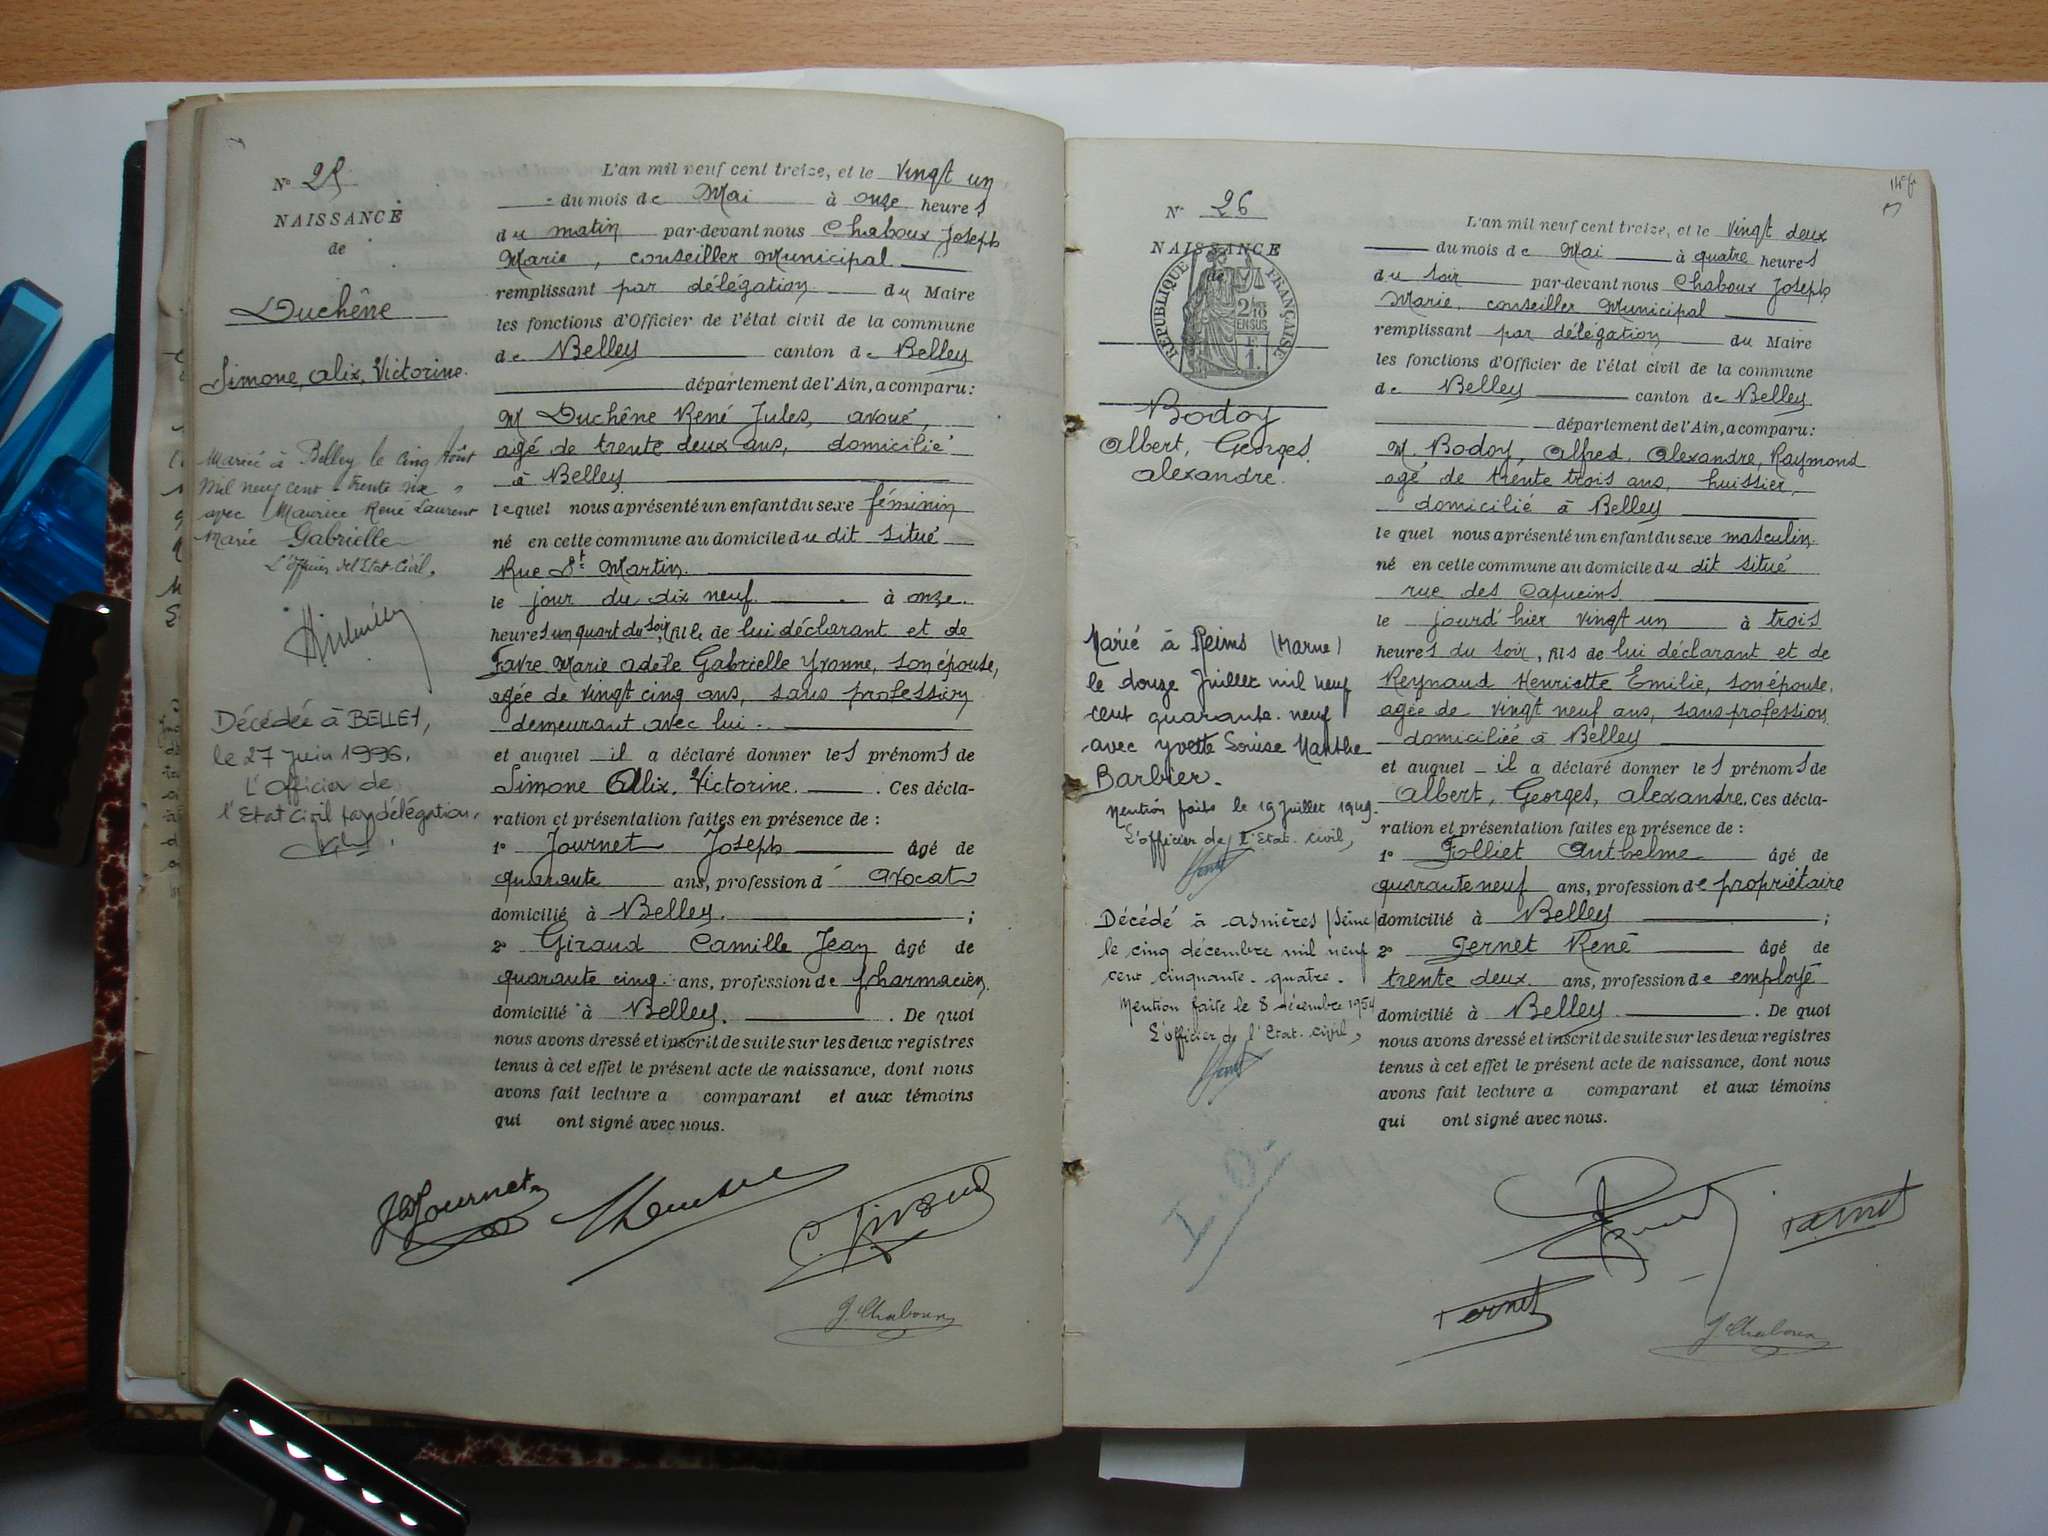 N° 25
NAISSANCE
de
Duchêne
Simone, Alix, Victorine.
Mariée à Belley le cinq Août
mil neuf cent trente six
avec Maurice René Laurent
Marie Gabrielle
L'Officier de l'Etat-Civil.
Décédée à BELLEY,
le 27 Juin 1996.
L'Officier de
l'Etat Civil par délégation.
L'an mil neuf cent treize, et le vingt un
du mois de Mai à onze heures
du matin par-devant nous Chaboux Joseph
Marie, conseiller Municipal
remplissant par délégation du Maire
les fonctions d'Officier de l'état civil de la commune
de Belley canton de Belley
département de l'Ain, a comparu:
M Duchêne René Jules, avoué,
agé de trente deux ans, domicilié
à Belley
lequel nous a présenté un enfant du sexe féminin
né en cette commune au domicile du dit situé
Rue St Martin.
le jour du dix neuf à onze
heures un quart du soir, fille de lui déclarant et de
Favre Marie Adèle Gabrielle Yvonne, son épouse,
agée de vingt cinq ans, sans profession
demeurant avec lui.
et auquel il a déclaré donner les prénoms de
Simone Alix, Victorine. Ces décla-
ration et présentation faites en présence de :
1° Journet Joseph âgé de
quarante ans, profession d' avocat
domicilié à Belley. ;
2° Giraud Camille Jean âgé de
quarante cinq ans, profession de pharmacien
domicilié à Belley. . De quoi
nous avons dressé et inscrit de suite sur les deux registres
tenus à cet effet le présent acte de naissance, dont nous
avons fait lecture a comparant et aux témoins
qui ont signé avec nous.
J Journet
C. Giraud
J. Chaboux
N° 26
NAISSANCE
de
RÉPUBLIQUE FRANÇAISE
2/10 EN SUS
F. 1.
Bodoy
Albert, Georges,
Alexandre.
Marié à Reims (Marne)
le douze Juillet mil neuf
cent quarante-neuf
avec Yvette Louise Marthe
Barbier.
Mention faite le 19 Juillet 1949.
L'officier de l'Etat-civil,
Décédé à Asnières (Seine)
le cinq décembre mil neuf
cent cinquante-quatre.
Mention faite le 8 décembre 1954
L'officier de l'Etat-civil,
L'an mil neuf cent treize, et le vingt deux
du mois de Mai à quatre heures
du soir par-devant nous Chaboux Joseph
Marie, conseiller Municipal
remplissant par délégation du Maire
les fonctions d'Officier de l'état civil de la commune
de Belley canton de Belley
département de l'Ain, a comparu:
M. Bodoy, Alfred, Alexandre, Raymond
agé de trente trois ans, huissier,
domicilié à Belley
lequel nous a présenté un enfant du sexe masculin
né en cette commune au domicile du dit situé
rue des Capucins
le jourd'hier vingt un à trois
heures du soir, fils de lui déclarant et de
Reynaud Henriette Emilie, son épouse,
agée de vingt neuf ans, sans profession
domiciliée à Belley
et auquel il a déclaré donner les prénoms de
Albert, Georges, Alexandre. Ces décla-
ration et présentation faites en présence de :
1° Folliet Anthelme âgé de
quarante neuf ans, profession de propriétaire
domicilié à Belley ;
2° Pernet René âgé de
trente deux ans, profession de employé
domicilié à Belley . De quoi
nous avons dressé et inscrit de suite sur les deux registres
tenus à cet effet le présent acte de naissance, dont nous
avons fait lecture a comparant et aux témoins
qui ont signé avec nous.
J. Chaboux